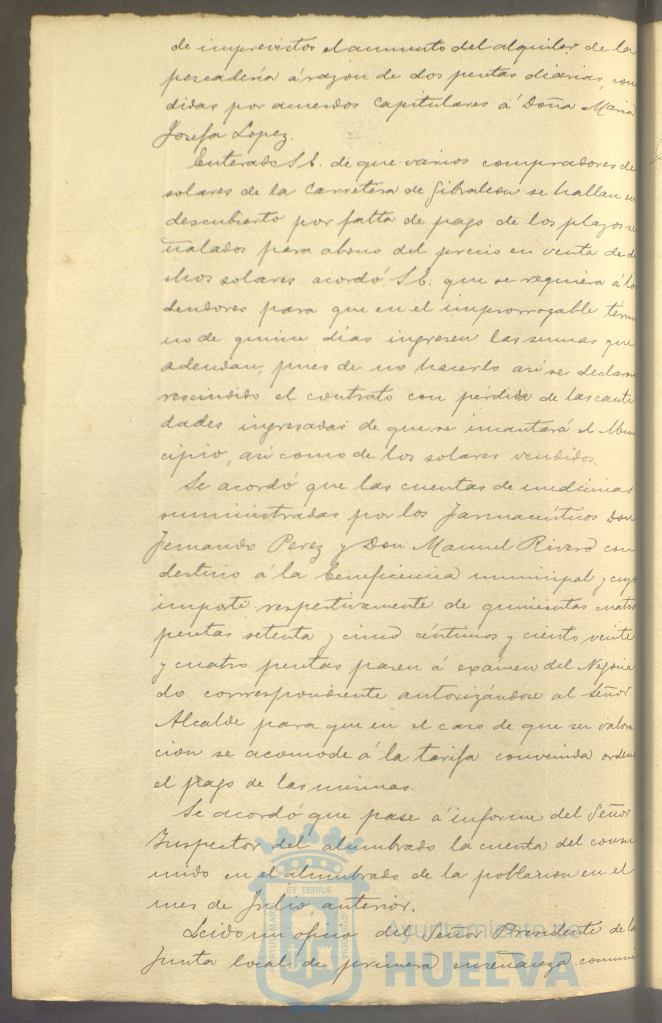 de imprevistos el aumento del alquiler de la
pescadería á razon de dos pesetas diarias, con
didas por acuerdos capitulares á Doña Maria
Josefa Lopez.
Enterado S. E. de que varios compradores de
solares de la Carretera de Gibraleon se hallan en
descubierto por falta de pago de los plazos se
ñalados para abono del precio en venta de di
chos solares acordó S. E. que se requiera á los
deudores para que en el improrrogable térmi
no de quince dias ingresen las sumas que
adeudan, pues de no hacerlo asi se declara
rescindido el contrato con pérdida de las canti
dades ingresadas de que se incautará el Muni
cipio, asi como de los solares vendidos.
Se acordó que las cuentas de medicinas
suministradas por los Farmaceúticos Don
Fernando Perez y Don Manuel Rivero con
destino á la beneficencia municipal y cuyo
importe respectivamente de quinientas cuatro
pesetas setenta y cinco céntimos y ciento veinte
y cuatro pesetas pasen á exámen del Negocia
do correspondiente autorizándose al Señor
Alcalde para que en el caso de que su valora
cion se acomode á la tarifa convenida ordene
el pago de las mismas.
Se acordó que pase á informe del Señor
Inspector del alumbrado la cuenta del consu
mido en el alumbrado de la poblacion en el
mes de Julio anterior.
Leido un oficio del Señor Presidente de la
Junta local de primera enseñanza comuni
ET TERRÆ
PORTUS MARIS
CUSTODIA
Ayuntamiento de
HUELVA